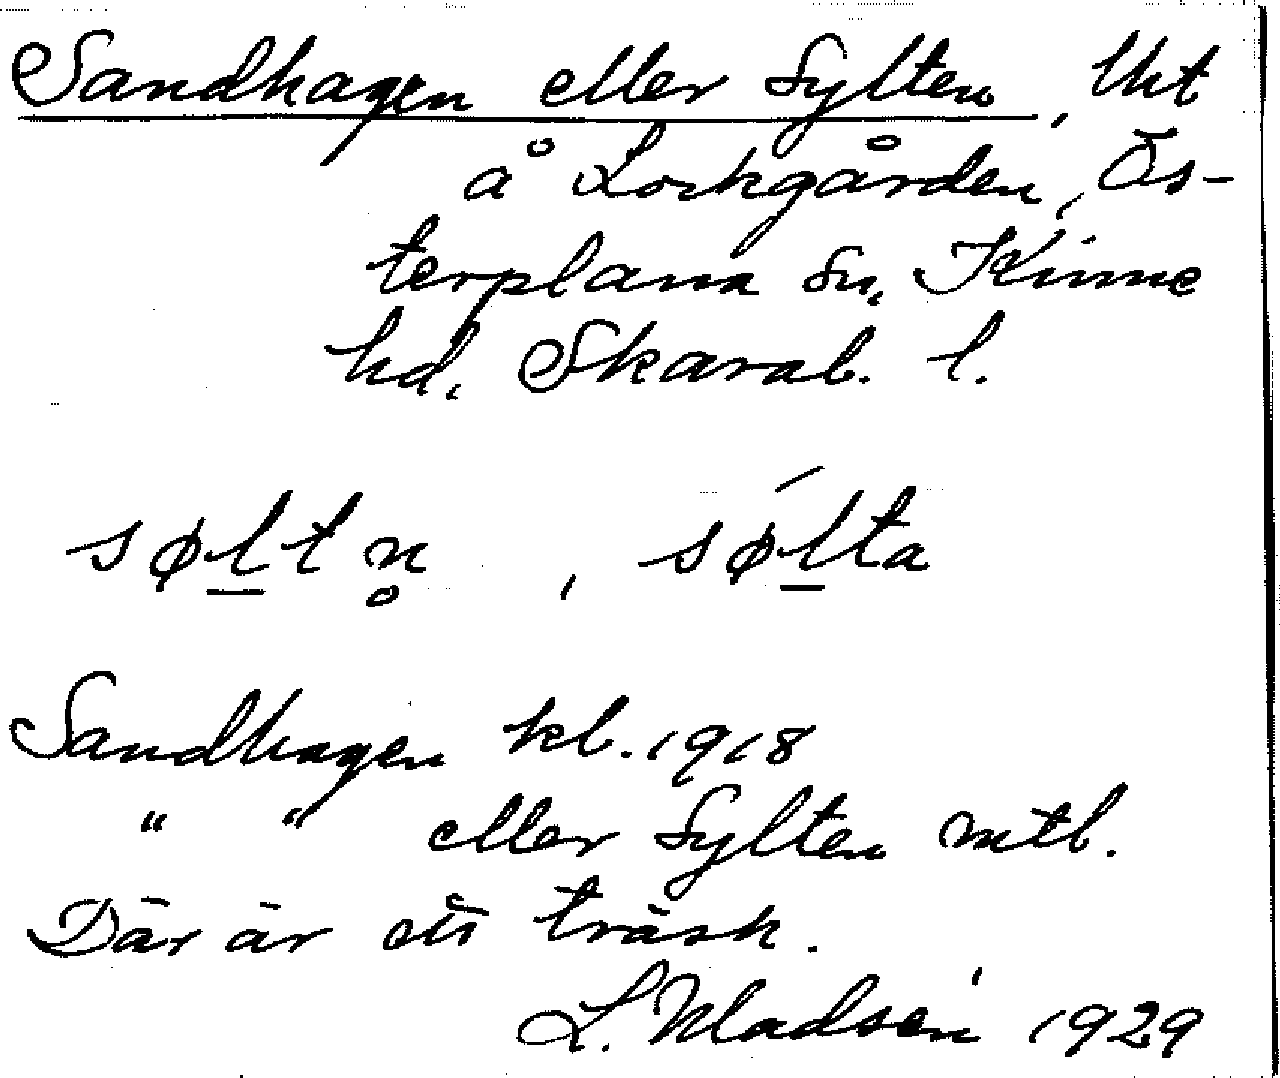 Sandhagen eller Sylten, Utt
å Lockgården, Ös-
terplana sn, Kinne
hd, Skarab. l.
søltn̥, sǿlta
Sandhagen kl. 1918
" " eller Sylten mtb.
Där är ett träsk.
L. Madsén 1929